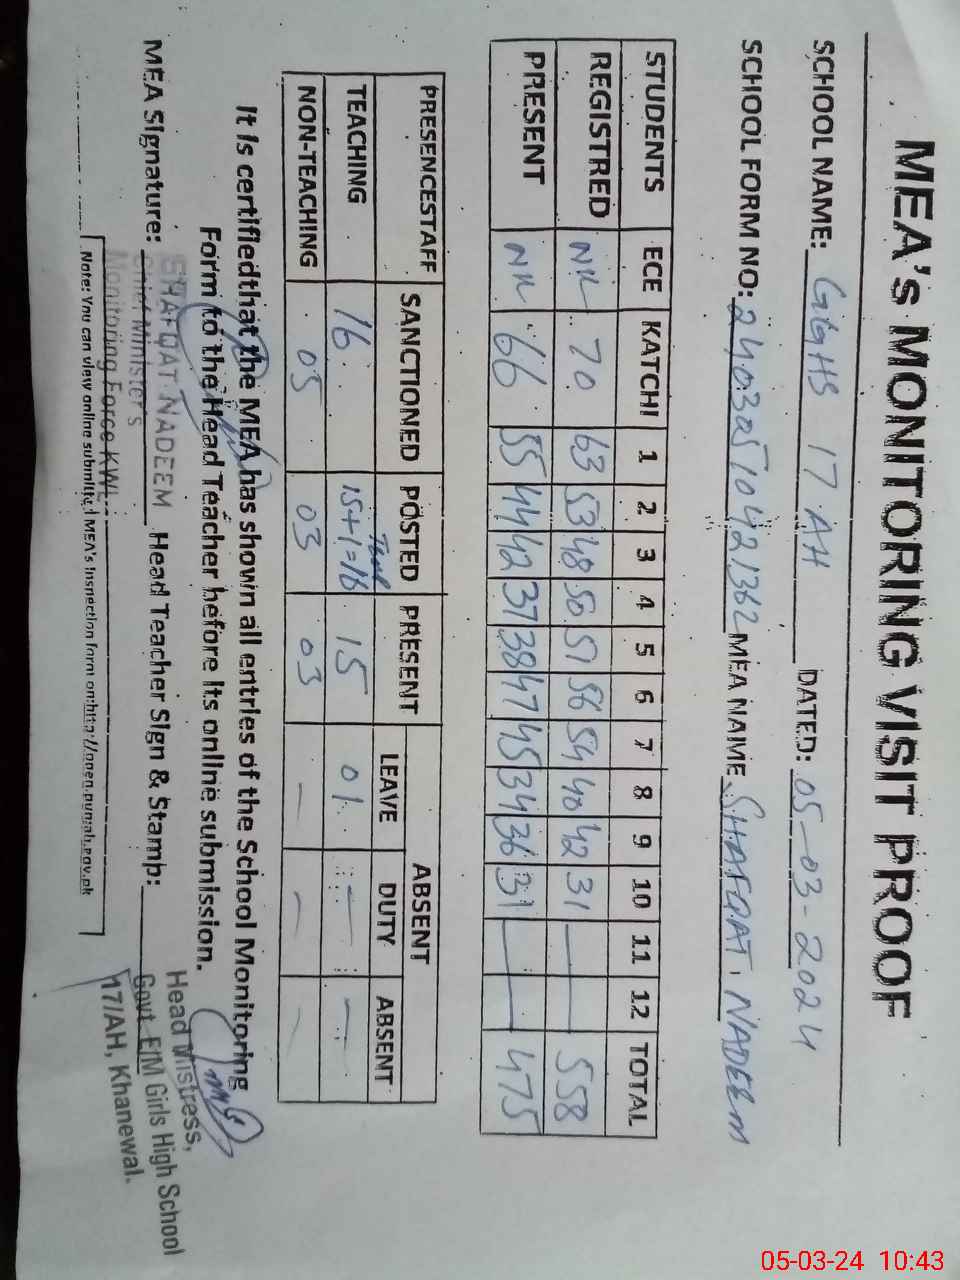 MEA's MONITORING VISIT PROOF
SCHOOL NAME: GGHS 17 AH DATED: 05-03-2024
SCHOOL FORM NO: MEA NAME SHAFQAT. NADEEM
STUDENTS ECE KATCHI 1 2 3 4 5 6 7 8 9 10 11 12 TOTAL
REGISTRED NIL 70 63 53 48 50 51 56 54 40 42 31 — — 558
PRESENT NIL 66 55 44 42 37 38 47 45 34 36 31 — — 475
PRESENCESTAFF SANCTIONED POSTED PRESENT ABSENT
LEAVE DUTY ABSENT
Total
TEACHING 16 15+1=16 15 01 — —
NON-TEACHING 05 03 03 — — —
It is certifiedthat the MEA has shown all entries of the School Monitoring
Form to the Head Teacher before its online submission.
MEA Signature: Head Teacher Sign & Stamp:
SHAFQAT NADEEM
Chief Ministers
Monitoring Force KWL
Head Mistress,
Govt. E/M Girls High School
17/AH, Khanewal.
Note: You can view online submitted MEA's inspection form on:http://open.punjab.gov.pk
05-03-24 10:43